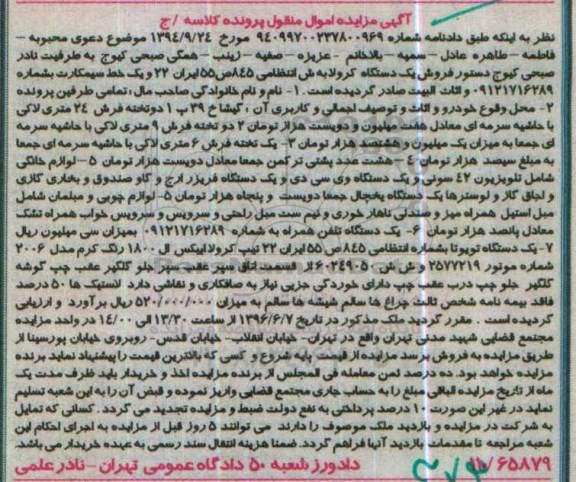 آگهی مزایده اموال منقول پرونده کلاسه / ج
نظر به اینکه طبق دادنامه شماره ۹۴۰۹۹۷۰۰۲۳۷۸۰۰۹۶۹ مورخ ۱۳۹۴/۹/۲۴ موضوع دعوی محبوبه -
فاطمه - طاهره عادل - سمیه - بالاخانم - عزیزه - صفیه - زینب - همگی صبحی کیوج به طرفیت نادر
صبحی کیوج دستور فروش یک دستگاه کرولا به ش انتظامی ۸۴۵ص۵۵ ایران ۲۲ و یک خط سیمکارت بشماره
۰۹۱۲۱۷۱۶۲۸۹ و اثاث البیت صادر گردیده است. ۱- نام و نام خانوادگی صاحب مال: تمامی طرفین پرونده
۲- محل وقوع خودرو و اثاث و توصیف اجمالی و کاربری آن: گیشا خ ۳۹ پ ۱ دوتخته فرش ۲۴ متری لاکی
با حاشیه سرمه ای معادل هفت میلیون و دویست هزار تومان ۲- دو تخته فرش ۹ متری لاکی با حاشیه سرمه
ای جمعا به میزان یک میلیون و هشتصد هزار تومان ۳- یک تخته فرش ۶ متری لاکی با حاشیه سرمه ای جمعا
به مبلغ سیصد هزار تومان ۴- هشت عدد پشتی ترکمن جمعا معادل دویست هزار تومان ۵- لوازم خانگی
شامل تلویزیون ۴۲ سونی و یک دستگاه وی سی دی و یک دستگاه فریزر ارج و گاو صندوق و بخاری گازی
و اجاق گاز و لوسترها یک دستگاه یخچال جمعا دویست و پنجاه هزار تومان ۵- لوازم چوبی و مبلمان شامل
مبل استیل همراه میز و صندلی ناهار خوری و نیم ست مبل راحتی و سرویس و سرویس خواب همراه تشک
معادل پانصد هزار تومان ۶- یک دستگاه تلفن همراه به شماره ۰۹۱۲۱۷۱۶۲۸۹ بمیزان سی میلیون ریال
۷- یک دستگاه تویوتا بشماره انتظامی ۸۴۵ ص ۵۵ ایران ۲۲ تیپ کرولا ایکس ال ۱۸۰۰ رنگ کرم مدل ۲۰۰۶
شماره موتور ۲۵۷۷۲۱۹ و ش ش ۶۰۲۴۹۰۵ از قسمت اتاق سپر عقب سپر جلو گلگیر عقب چپ گوشه
گلگیر جلو چپ درب عقب چپ دارای خوردگی جزیی نیاز به صافکاری و نقاشی دارد لاستیک ها ۵۰ درصد
فاقد بیمه نامه شخص ثالث چراغ ها سالم شیشه ها سالم به میزان ۵۲۰/۰۰۰/۰۰۰ ریال برآورد و ارزیابی
گردیده است. مقرر گردید ملک مذکور در تاریخ ۱۳۹۶/۶/۷ از ساعت ۱۳/۳۰ الی ۱۴/۰۰ در واحد مزایده
مجتمع قضایی شهید مدنی تهران واقع در تهران- خیابان انقلاب- خیابان قدس- روبروی خیابان پورسینا از
طریق مزایده به فروش برسد مزایده از قیمت پایه شروع و کسی که بالاترین قیمت را پیشنهاد نماید برنده
مزایده خواهد بود. ده درصد ثمن معامله فی المجلس از برنده مزایده اخذ و خریدار باید ظرف مدت یک
ماه از تاریخ مزایده الباقی مبلغ را به حساب جاری مجتمع قضایی واریز نموده و قبض آن را به این شعبه تسلیم
نماید در غیر این صورت ۱۰ درصد پرداختی به نفع دولت ضبط و مزایده تجدید می گردد. کسانی که تمایل
به شرکت در مزایده و بازدید ملک موصوف را دارند می توانند ۵ روز قبل از مزایده به اجرای احکام این
شعبه مراجعه تا مقدمات بازدید آنها فراهم گردد. ضمنا هزینه انتقال سند رسمی به عهده خریدار می باشد.
۱۱۰/۶۵۸۷۹ دادورز شعبه ۵۰ دادگاه عمومی تهران - نادر علمی